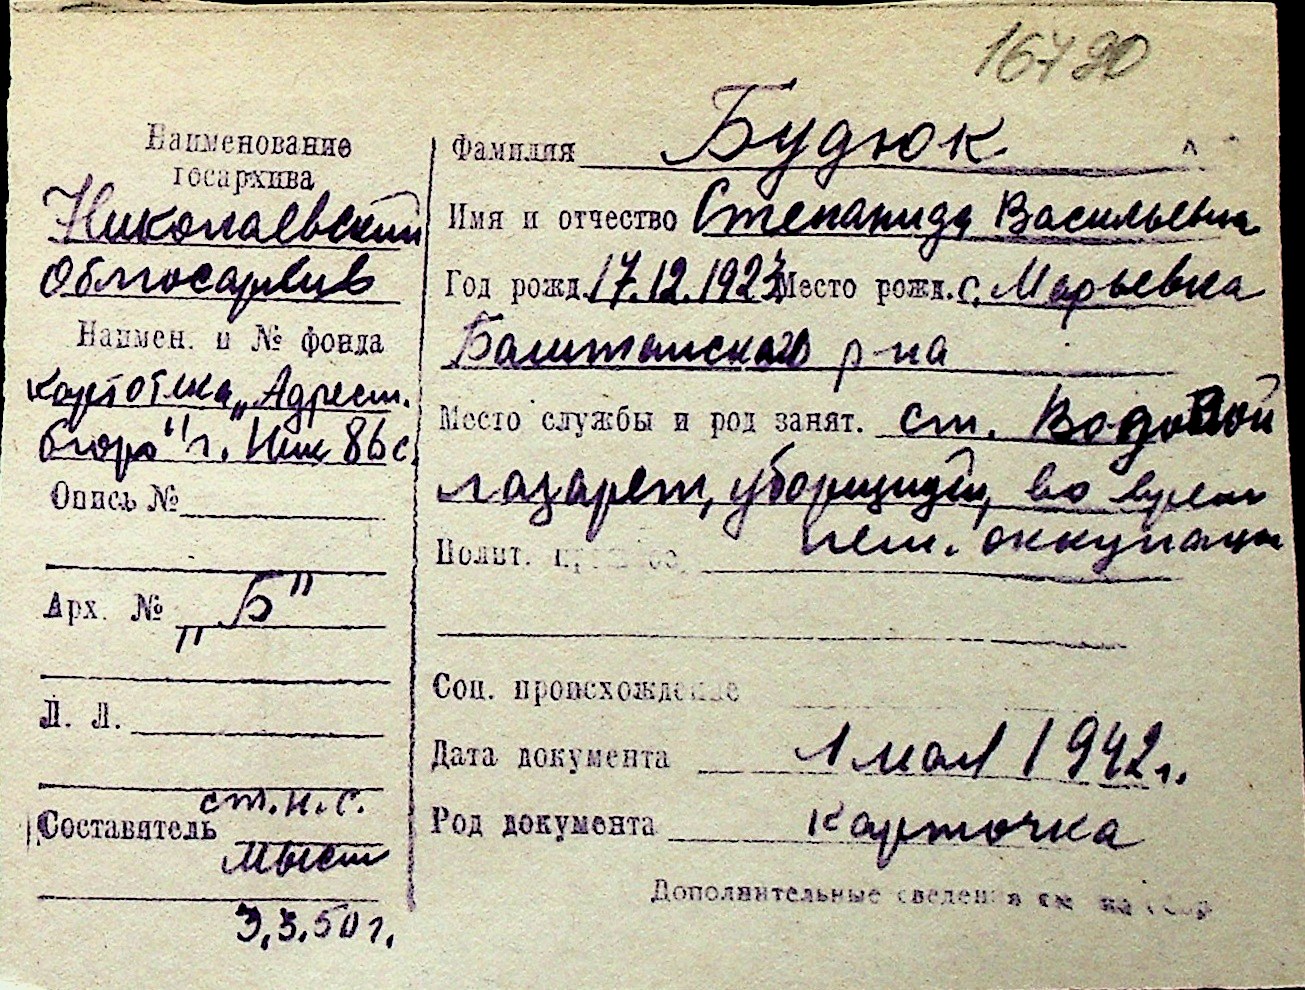 16490
Наименование
госархива
Николаевский
Облгосархив
Наимен. и № фонда
картотека „Адресн.
бюро" г. Ник 86 с.
Опись №
Арх. № „Б"
Л. Л.
Составитель ст. н. с.
Мыст
3.3.50 г.
Фамилия Будюк
Имя и отчество Степанида Васильевна
Год рожд. 17.12.1923 Место рожд. с. Марьевка
Баштанского р-на
Место службы и род занят. ст. Водопой
лазарет, уборщицей, во врем
нем. оккупации
Полит.
Соц. происхождение
Дата документа 1 мая 1942 г.
Род документа карточка
Дополнительные сведения см. на обор